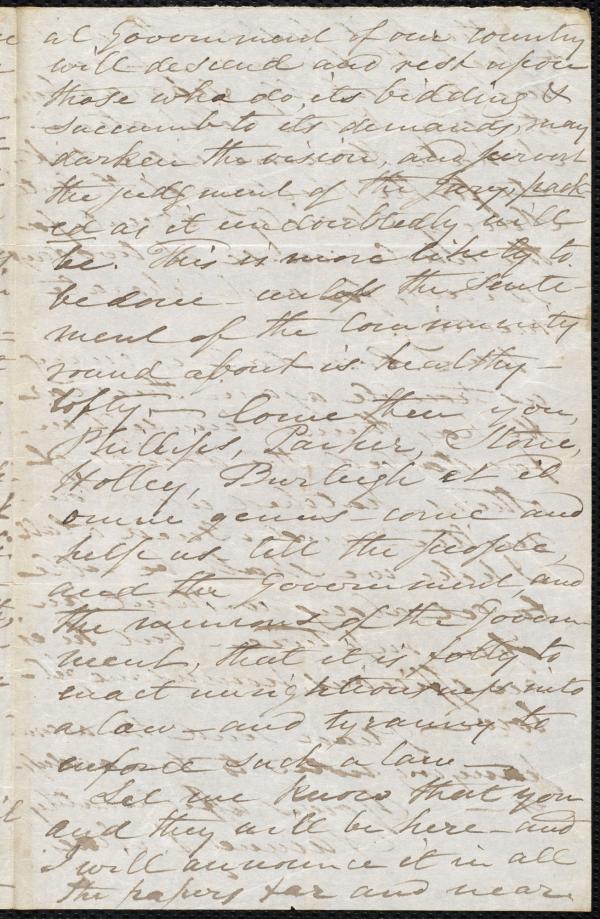 al Government of our country
will descend and rest upon
those who do, its bidding &
succumb to its demands, may
darken the vision, and pervert
the judgment of the Jury, pack
ed as it undoubtedly will
be. This is more likely to
be done - unless the senti-
ment of the community
round about is healthy -
lofty. - Come then you,
Phillips, Parker, Stone,
Holley, Burleigh et id
omne genus - come and
help us tell the people,
and the Government, and
the minions of the Govern
ment, that it is folly to
enact unrighteousness into
a law - and tyranny to
enforce such a law -
Let me know that you
and they will be here - and
I will announce it in all
the papers far and near.